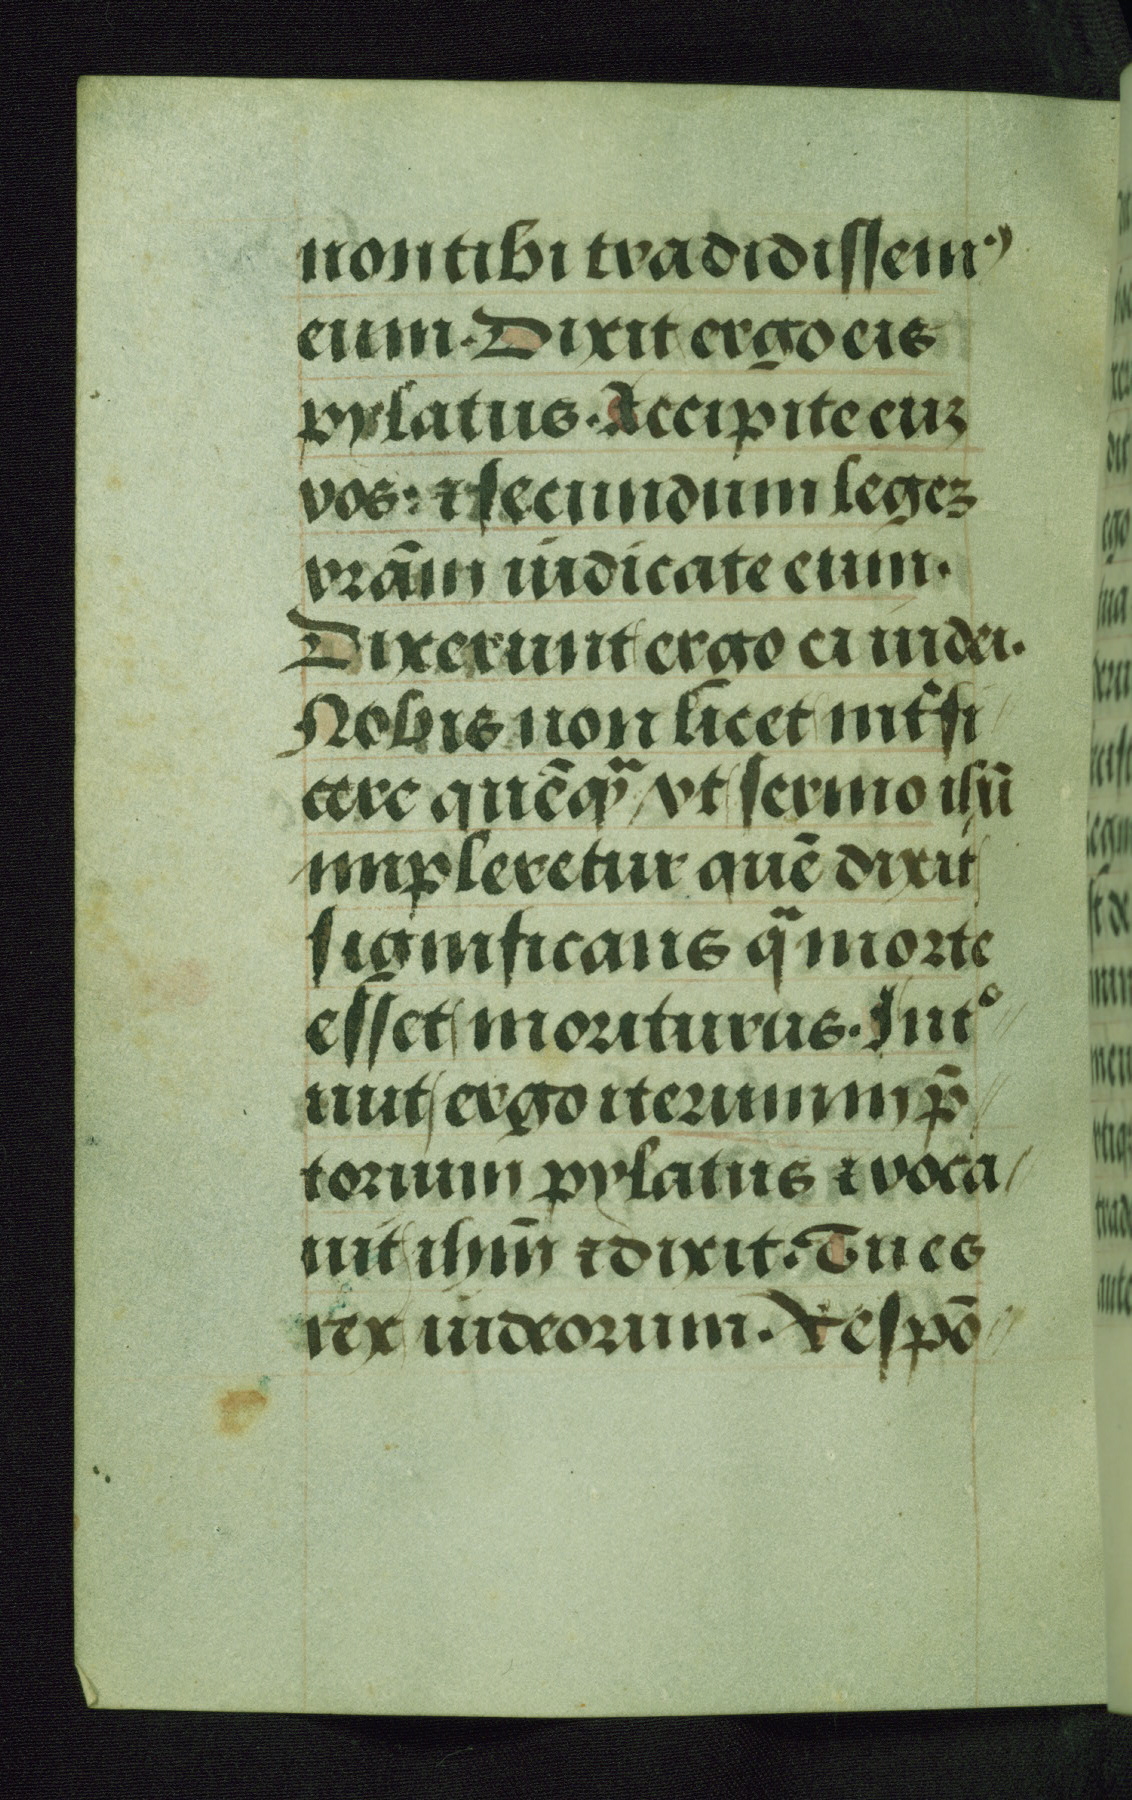 non tibi tradidissemꝰ
eum. Dixit ergo eis
pylatus. Accipite euꝫ
vos: ⁊ secundum legeꝫ
vr̄am iudicate eum.
Dixerunt ergo ei iudei.
Nobis non licet int̾fi
cere quēqᷓ / vt sermo ihū
impleretur quē dixit
significans qᷓ morte
esset moriturus. Int°
iuit ergo iterum in p̄
torium pylatus ⁊ voca
uit ihm̄ ⁊ dixit: Tu es
rex iudeorum. Respō